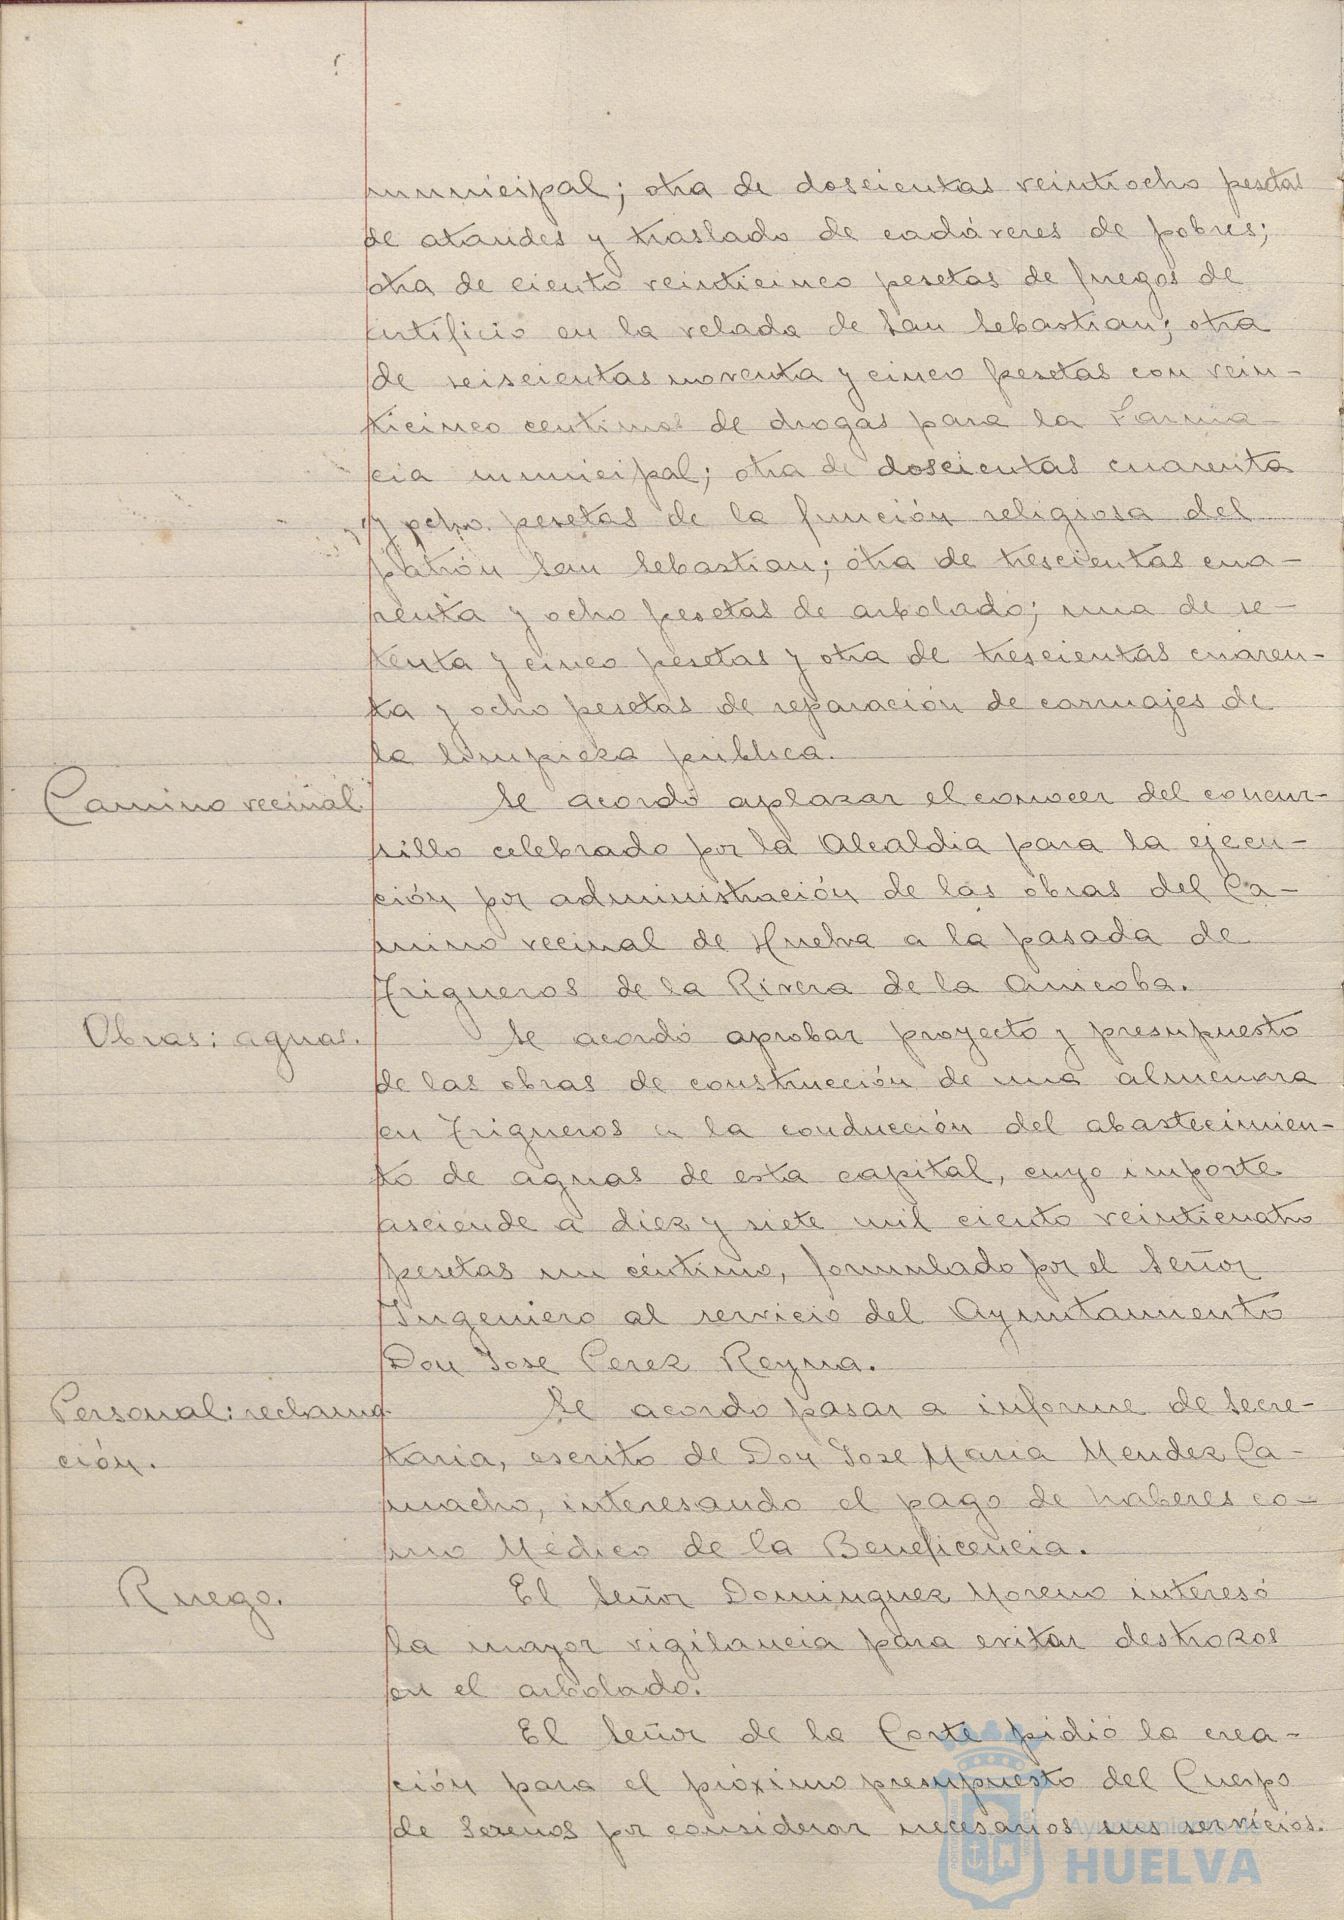 municipal; otra de doscientas veintiocho pesetas
de ataudes y traslado de cadáveres de pobres;
otra de ciento veinticinco pesetas de fuegos de
artificio en la velada de San Sebastian; otra
de seiscientas noventa y cinco pesetas con vein-
ticinco centimos de drogas para la Farma-
cia municipal; otra de doscientas cuarenta
y ocho pesetas de la función religiosa del
patrón San Sebastian; otra de trescientas cua-
renta y ocho pesetas de arbolado; una de se-
tenta y cinco pesetas y otra de trescientas cuaren-
ta y ocho pesetas de reparación de carruajes de
la limpieza pública.
Camino vecinal
Se acordó aplazar el conocer del concur-
sillo celebrado por la Alcaldia para la ejecu-
ción por administración de las obras del Ca-
mino vecinal de Huelva a la pasada de
Trigueros de la Rivera de la Anicoba.
Obras: aguas.
Se acordó aprobar proyecto y presupuesto
de las obras de construcción de una almenara
en Trigueros a la conducción del abastecimien-
to de aguas de esta capital, cuyo importe
asciende a diez y siete mil ciento veinticuatro
pesetas un céntimo, formulado por el Señor
Ingeniero al servicio del Ayuntamiento
Don Jose Perez Reyna.
Personal: reclama-
ción.
Se acordo pasar a informe de Secre-
taria, escrito de Don Jose Maria Mendez Ca-
macho, interesando el pago de haberes co-
mo Médico de la Beneficencia.
Ruego.
El Señor Dominguez Moreno interesó
la mayor vigilancia para evitar destrozos
en el arbolado.
El Señor de la Corte pidió la crea-
ción para el próximo presupuesto del Cuerpo
de Serenos por considerar necesarios sus servicios.
Ayuntamiento de
HUELVA